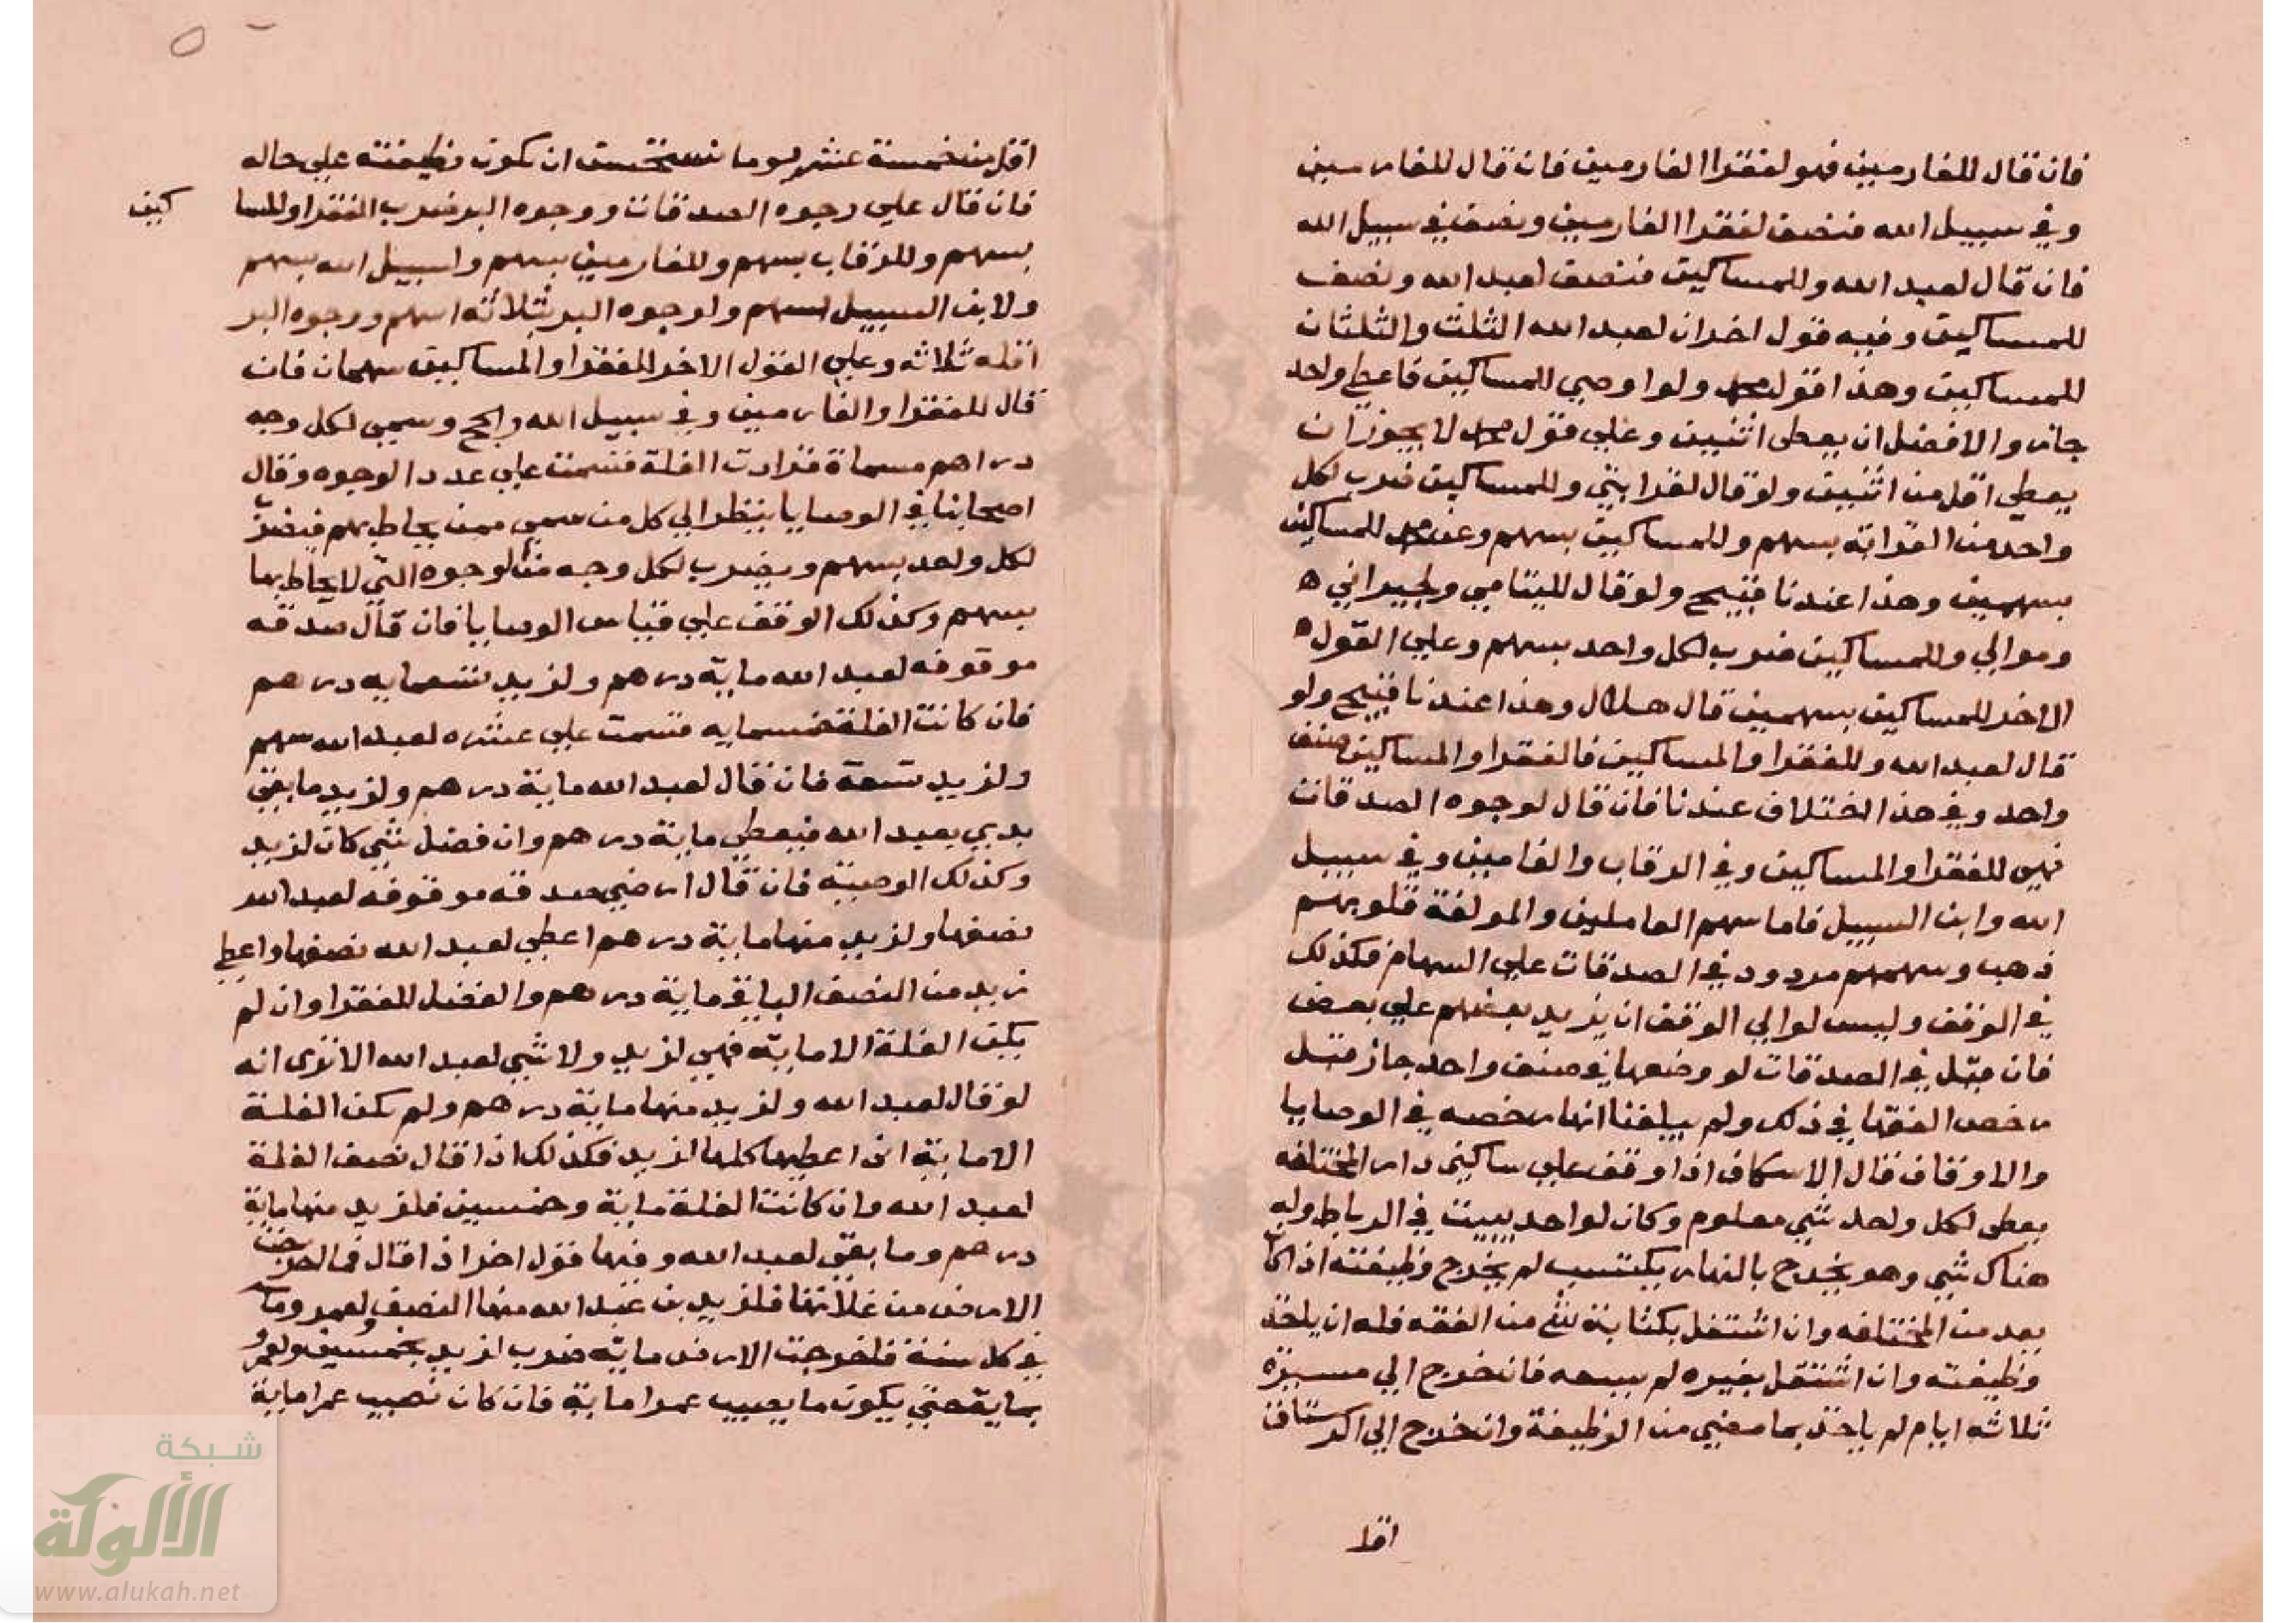 فان قال للغارمين فهو لفقرا الغارمين فان قال للغارمين
وفي سبيل الله فنصف لفقرا الغارمين ونصف في سبيل الله
فان قال لعبد الله وللمساكين فنصف لعبد الله ونصف
للمساكين وفيه قول اخر ان لعبد الله الثلث والثلثان
للمساكين وهذا قول محمد ولو اوصي للمساكين فاعطي واحد
جاز والافضل ان يعطى اثنين وعلي قول محمد لا يجوز ان
يعطي اقل من اثنين ولو قال لقرابتي وللمساكين ضرب لكل
واحد من القرابة بسهم وللمساكين بسهم وعن محمد للمساكين
بسهمين وهذا عندنا قبيح ولو قال لليتامي ولجيراني ه
وموالي وللمساكين ضرب لكل واحد بسهم وعلي القول ه
الاخر للمساكين بسهمين قال هلال وهذا عندنا قبيح ولو
قال لعبد الله وللفقرا والمساكين فالفقرا والمساكين صنف
واحد وفي هذا اختلاف عندنا فان قال لوجوه الصدقات
فهي للفقرا والمساكين وفي الرقاب والغامين وفي سبيل
الله وابن السبيل فاما سهم العاملين والمولفة قلوبهم
ذهب وسهمهم مردود في الصدقات علي السهام فكذلك
في الوقف وليس لوالي الوقف ان يزيد بعضهم علي بعض
فان قيل في الصدقات لو وضعها في صنف واحد جاز قيل
رخص الفقها في ذلك ولم يبلغنا انها رخصه في الوصايا
والاوقاف قال الاسكاف اذا وقف علي ساكني دار المختلفه
يعطى لكل واحد شي معلوم وكان لواحد يبيت في الرباط وله
هناك شي وهو يخرج بالنهار يكتسب لم يخرج وظيفته اذا كان
يعد من المختلفه وان اشتغل بكتابة شي من الفقه فله ان ياخذ
وظيفته وان اشتغل بغيره لم يسعه فان خرج الي مسيرة
ثلاثه ايام لم ياخذ بما مضي من الوظيفة وان خرج الي الرستاق
اقل
اقل من خمسة عشر يوما نستحسن ان تكون وظيفته علي حاله
فان قال علي وجوه الصدقات ووجوه البر ضرب الفقرا والمسا
كين
بسهم وللرقاب بسهم وللغارمين بسهم ولسبيل الله بسهم
ولابن السبيل بسهم ولوجوه البر بثلاثة اسهم ووجوه البر
اقله ثلاثه وعلي القول الاخر للفقرا والمساكين سهمان فان
قال للفقرا والغارمين وفي سبيل الله والحج وسمي لكل وجه
دراهم مسماة فزادت الغلة قسمت علي عدد الوجوه وقال
اصحابنا في الوصايا ينظر الي كل من سمي ممن يحاط بهم فيضرب
لكل واحد بسهم ويضرب لكل وجه من الوجوه التي لا يحاط بها
بسهم وكذلك الوقف علي قياس الوصايا فان قال صدقه
موقوفه لعبد الله ماية درهم ولزيد تسعمايه درهم
فان كانت الغلة خمسمايه قسمت علي عشره لعبد الله سهم
ولزيد تسعة فان قال لعبد الله ماية درهم ولزيد ما بقي
بدي بعبد الله فيعطي ماية درهم وان فضل شي كان لزيد
وكذلك الوصية فان قال ارضي صدقه موقوفه لعبد الله
نصفها ولزيد منها ماية درهم اعطي لعبد الله نصفها واعطي
زيد من النصف الباقي ماية درهم والفضل للفقرا وان لم
يكن الغلة الا ماية فهي لزيد ولا شي لعبد الله الا تري انه
لو قال لعبد الله ولزيد منها ماية درهم ولم تكن الغلة
الا ماية اني اعطيها كلها لزيد فكذلك اذا قال نصف الغلة
لعبد الله وان كانت الغلة ماية وخمسين فلزيد منها ماية
درهم وما بقي لعبد الله وفيها قول اخر اذا قال فما اخرجت
الارض من غلاتها فلزيد بن عبد الله منها النصف ولعمرو ماية
في كل سنة فاخرجت الارض ماية ضرب لزيد بخمسين ولعمرو
بماية حتي يكون ما يصيب عمرا ماية فان كان نصيب عمرا ماية
شبكة
الألوكة
www.alukah.net